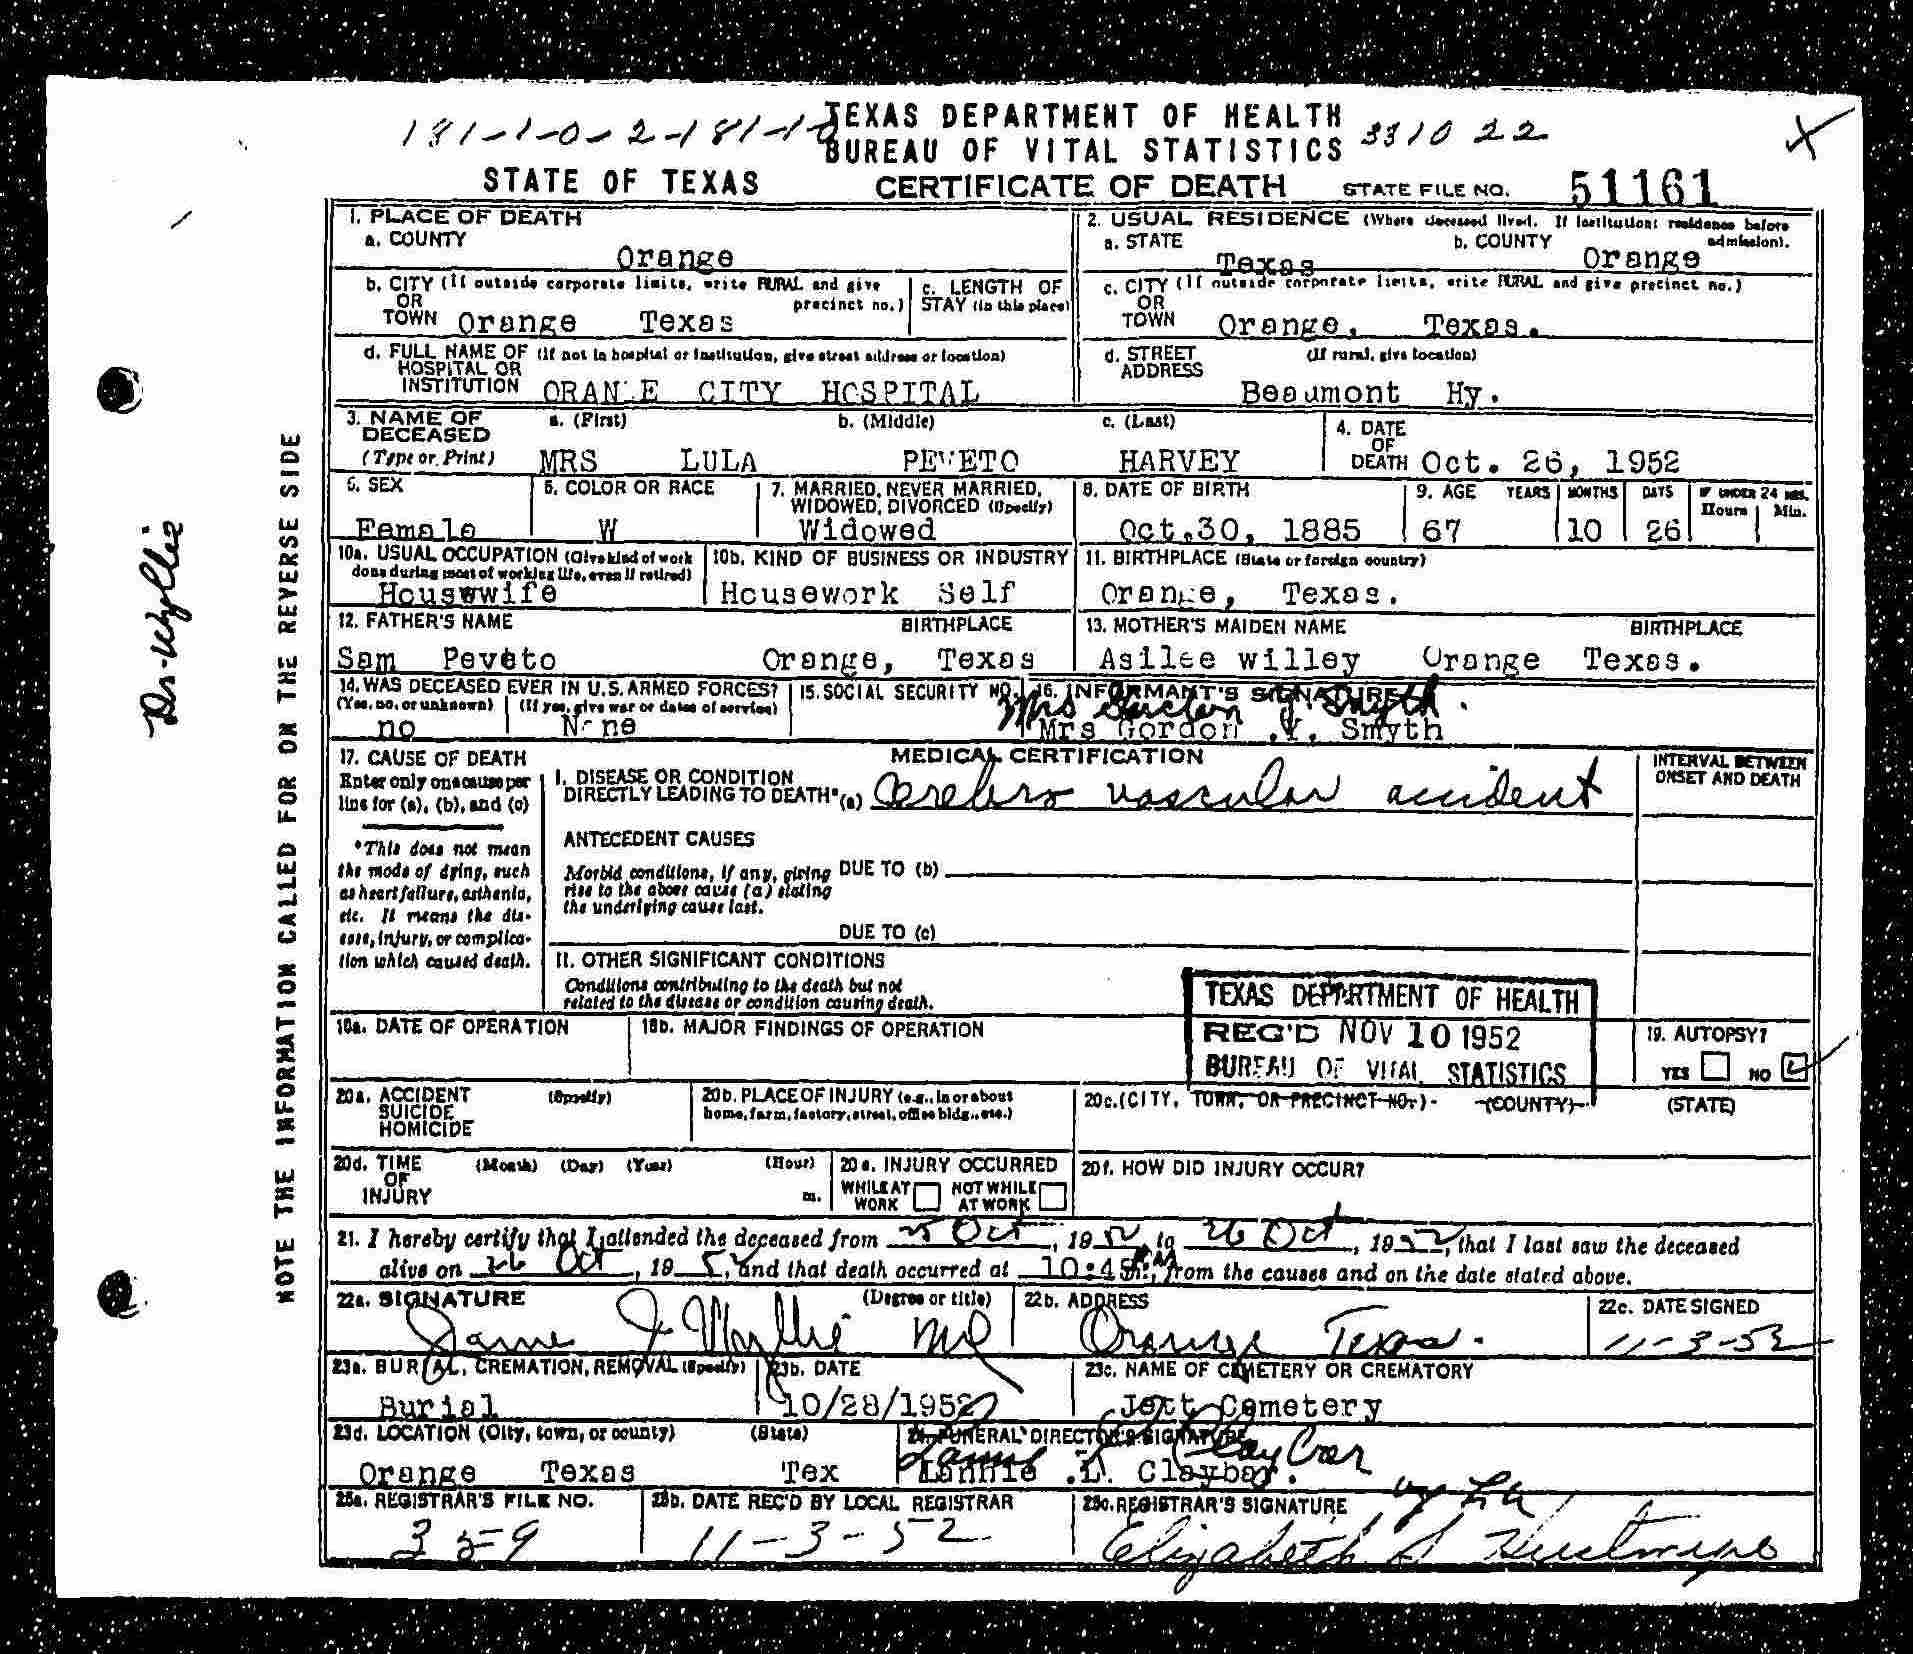 181-1-0-2-181-10
TEXAS DEPARTMENT OF HEALTH
BUREAU OF VITAL STATISTICS
331022
X
STATE OF TEXAS
CERTIFICATE OF DEATH
STATE FILE NO. 51161
1. PLACE OF DEATH
a. COUNTY
Orange
2. USUAL RESIDENCE (Where deceased lived. If institution: residence before admission).
a. STATE
Texas
b. COUNTY
Orange
b. CITY (If outside corporate limits, write RURAL and give precinct no.)
OR
TOWN Orange Texas
c. LENGTH OF
STAY (in this place)
c. CITY (If outside corporate limits, write RURAL and give precinct no.)
OR
TOWN Orange, Texas.
d. FULL NAME OF (If not in hospital or institution, give street address or location)
HOSPITAL OR
INSTITUTION ORAN E CITY HOSPITAL
d. STREET (If rural, give location)
ADDRESS
Beaumont Hy.
3. NAME OF
DECEASED
(Type or Print)
a. (First) b. (Middle) c. (Last)
MRS LULA PEVETO HARVEY
4. DATE
OF
DEATH Oct. 26, 1952
5. SEX
Female
6. COLOR OR RACE
W
7. MARRIED, NEVER MARRIED,
WIDOWED, DIVORCED (Specify)
Widowed
8. DATE OF BIRTH
Oct.30, 1885
9. AGE YEARS MONTHS DAYS IF UNDER 24 HRS.
Hours Min.
67 10 26
10a. USUAL OCCUPATION (Give kind of work
done during most of working life, even if retired)
Housewife
10b. KIND OF BUSINESS OR INDUSTRY
Housework Self
11. BIRTHPLACE (State or foreign country)
Orange, Texas.
12. FATHER'S NAME BIRTHPLACE
Sam Peveto Orange, Texas
13. MOTHER'S MAIDEN NAME BIRTHPLACE
Asilee willey Orange Texas.
14. WAS DECEASED EVER IN U.S. ARMED FORCES?
(Yes, no, or unknown) (If yes, give war or dates of service)
no None
15. SOCIAL SECURITY NO.
16. INFORMANT'S SIGNATURE
Mrs Gordon Y. Smyth.
Mrs Gordon .Y. Smyth
17. CAUSE OF DEATH
Enter only one cause per
line for (a), (b), and (c)
*This does not mean
the mode of dying, such
as heart failure, asthenia,
etc. It means the dis-
ease, injury, or complica-
tion which caused death.
MEDICAL CERTIFICATION
INTERVAL BETWEEN
ONSET AND DEATH
I. DISEASE OR CONDITION
DIRECTLY LEADING TO DEATH*(a) Cerebro vascular accident
ANTECEDENT CAUSES
Morbid conditions, if any, giving
rise to the above cause (a) stating
the underlying cause last.
DUE TO (b)
DUE TO (c)
II. OTHER SIGNIFICANT CONDITIONS
Conditions contributing to the death but not
related to the disease or condition causing death.
TEXAS DEPARTMENT OF HEALTH
REC'D NOV 10 1952
BUREAU OF VITAL STATISTICS
18a. DATE OF OPERATION
18b. MAJOR FINDINGS OF OPERATION
19. AUTOPSY?
YES NO
20a. ACCIDENT (Specify)
SUICIDE
HOMICIDE
20b. PLACE OF INJURY (e.g., in or about
home, farm, factory, street, office bldg., etc.)
20c. (CITY, TOWN, OR PRECINCT NO.) (COUNTY) (STATE)
20d. TIME (Month) (Day) (Year) (Hour)
OF
INJURY m.
20e. INJURY OCCURRED
WHILE AT WORK
NOT WHILE AT WORK
20f. HOW DID INJURY OCCUR?
21. I hereby certify that I attended the deceased from 25 Oct, 1952, to 26 Oct, 1952, that I last saw the deceased
alive on 26 Oct, 1952, and that death occurred at 10:45 m., from the causes and on the date stated above.
22a. SIGNATURE (Degree or title)
Jame J Wyllie MD
22b. ADDRESS
Orange Texas.
22c. DATE SIGNED
11-3-52
23a. BURIAL, CREMATION, REMOVAL (Specify)
Burial
23b. DATE
10/28/1952
23c. NAME OF CEMETERY OR CREMATORY
Jett Cemetery
23d. LOCATION (City, town, or county) (State)
Orange Texas Tex
24. FUNERAL DIRECTOR'S SIGNATURE
Lannie L Claybar
Lannie .L. Claybar.
25a. REGISTRAR'S FILE NO.
359
25b. DATE REC'D BY LOCAL REGISTRAR
11-3-52
25c. REGISTRAR'S SIGNATURE
Elizabeth S
NOTE THE INFORMATION CALLED FOR ON THE REVERSE SIDE
Dr. Wyllie